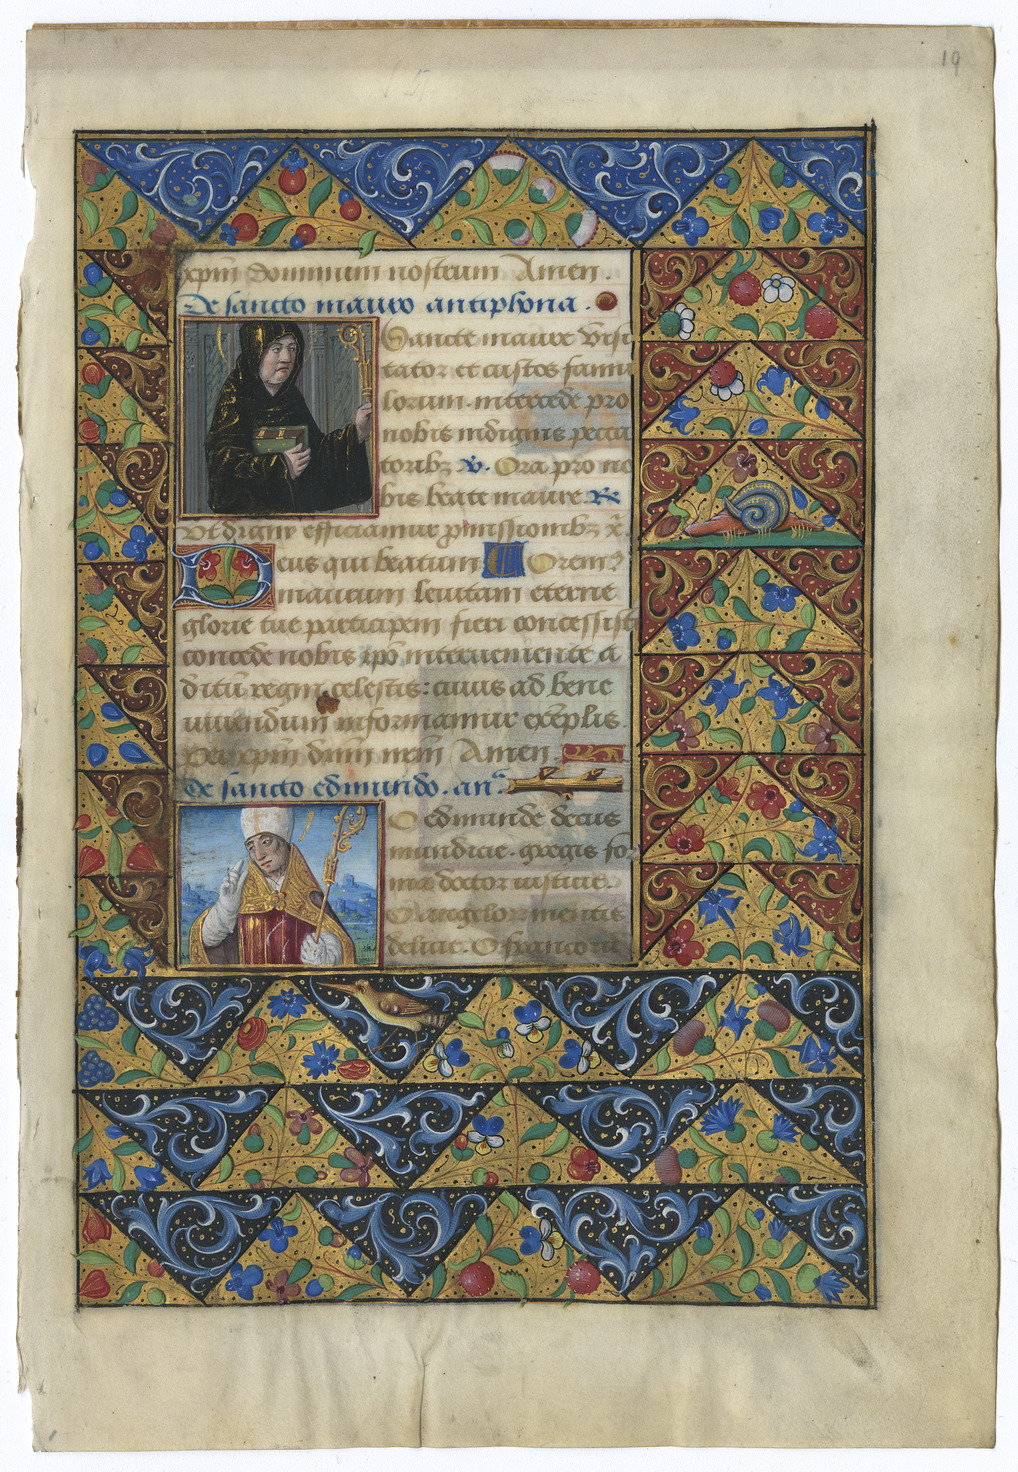 19
xpm dominum nostrum Amen.
De sancto mauro antiphona.
Sancte maure visi
tator et custos famu
lorum. intercede pro
nobis indignis pecca
toribꝫ ℣. Ora pro no
bis beate maure. ℟
Vt digni efficiamur
Deus qui beatum Orem
maurum leuitam eterne
glorie tue participem fieri concessisti
concede nobis interueniente a
ditū regni celestis: cuius ad bene
uiuendum informamur exēplis.
xpm dnm nrm Amen
de sancto edmundo. an.
O edmunde decus
mundicie. gregis for
me doctor iusticie.
Angelorum mentis
delicie. O francorū